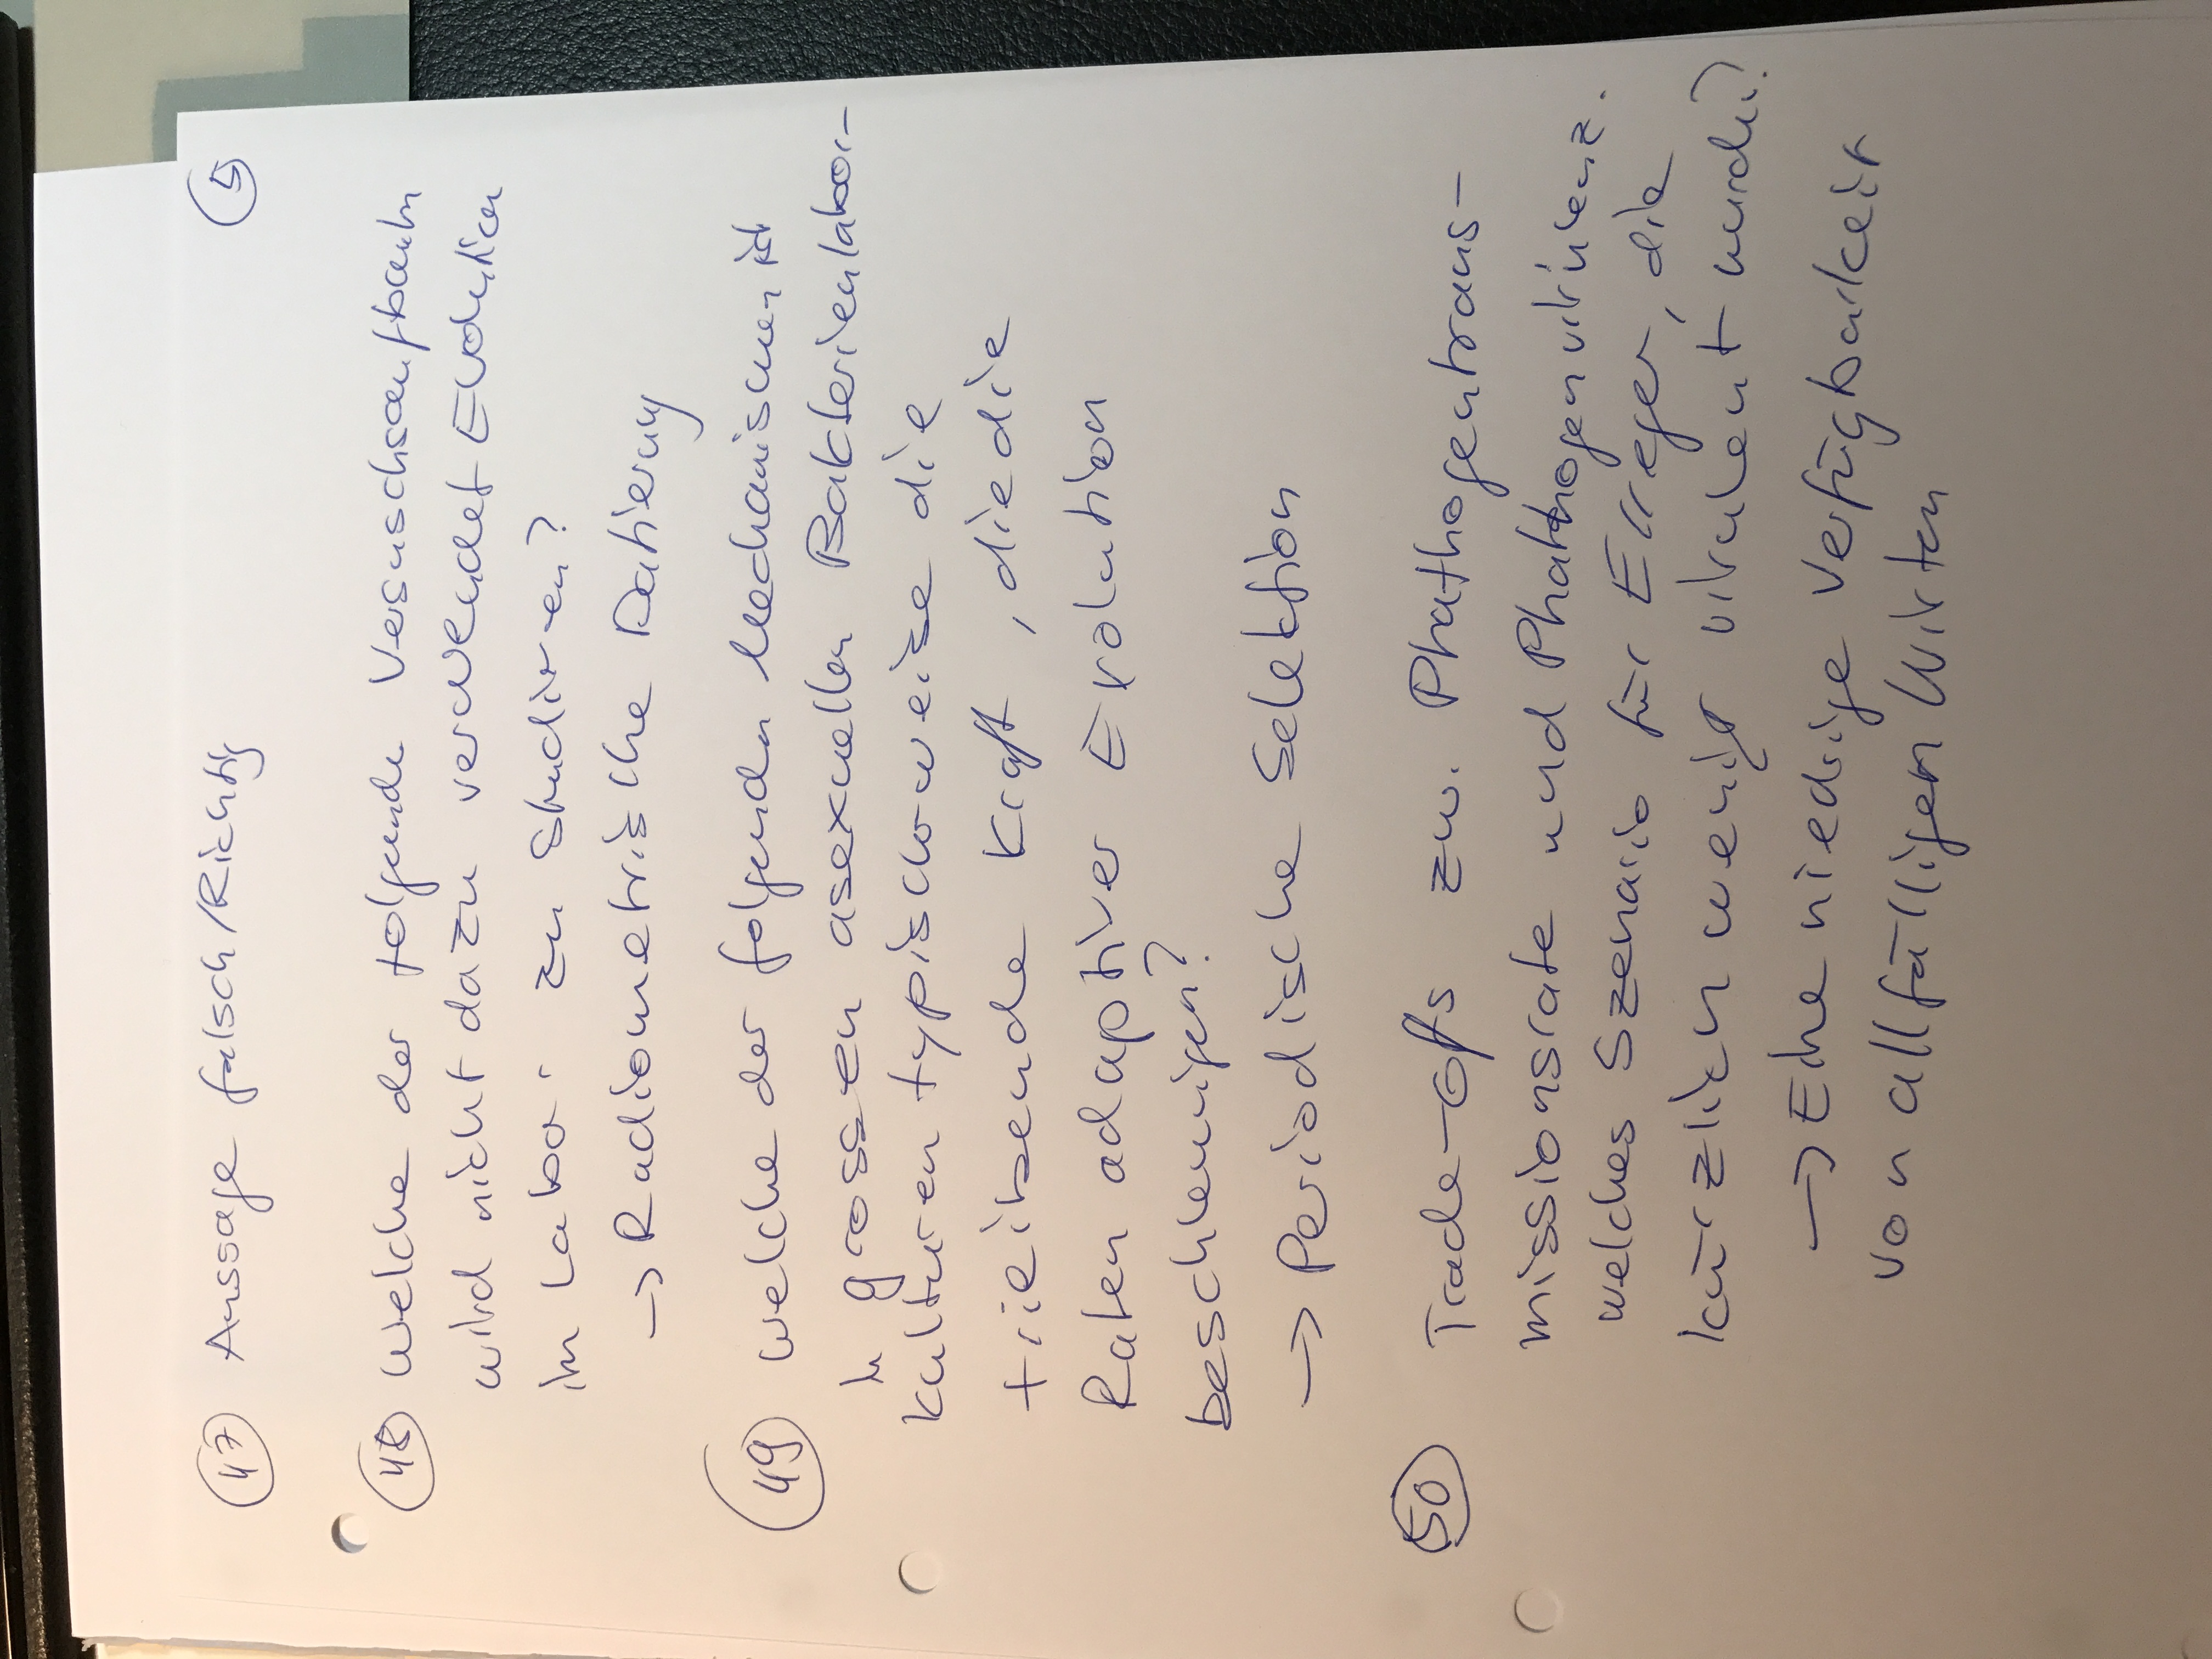 47 Aussage falsch/Richtig 5
48 Welche der folgende Versuschsaufbauten
wird nicht dazu verwendet Evolution
im Labor zu Studieren?
→ Radiometrische Datierung
49 Welche der folgenden Mechanismen ist
in grossen asexuellen Bakterienlabor-
kulturen typischerweise die
trieibende Kraft, die die
Raten adaptiver Evolution
beschleunigen?
→ Periodische Selektion
50 Trade-offs zw. Phathogentrans-
missionsrate und Phathogenvirulenz.
welches Szenario für Erreger, die
kürzlich wenig virulent wurden?
→ Eine niedrige Verfügbarkeit
von allfälligen Wirten